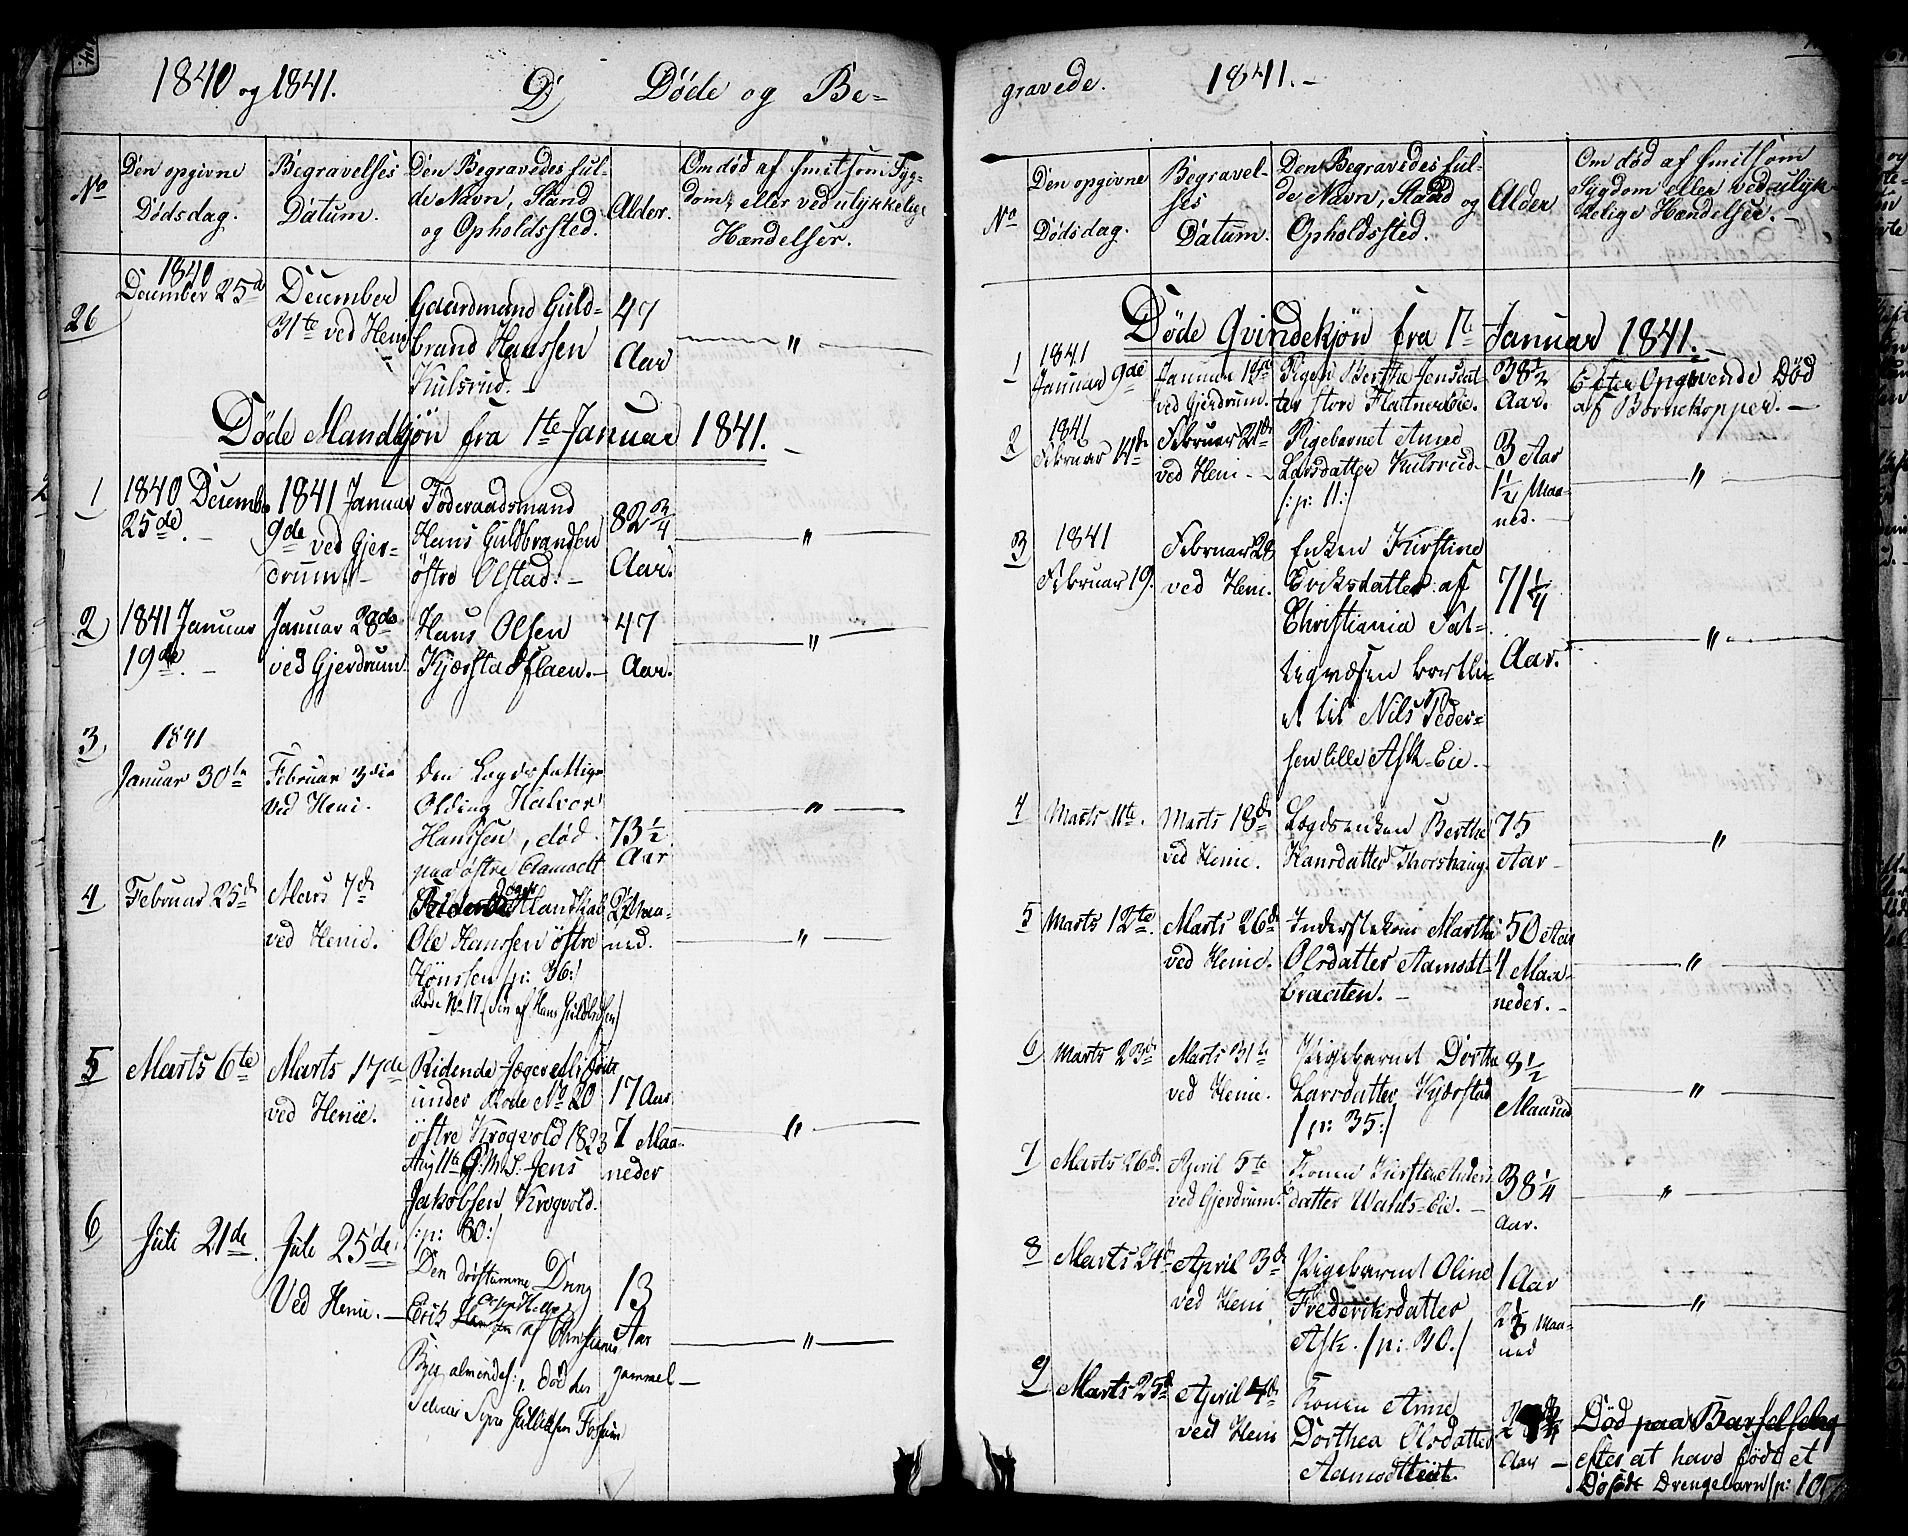 1840 og 1841. D Døde og Be-
No
Den opgivne
Dødsdag.
Begravelses
Datum.
Den Begravedes ful-
de Navn, Stand
og Opholdssted.
Alder.
Om død af smitsom Syg-
dom eller ved ulykkelige
Hændelser.
26
1840
December 25de
December
31te ved Heni
Gaardmand Guld-
brand Hanssen
Kulsrud. -
47
Aar
"
Døde Mandkjön fra 1te Januar 1841. -
1
1840 December
25de. -
1841 Januar
9de ved Gjer-
drum. -
Föderaadsmand
Hans Guldbrandsen
östre Olstad. -
82 3/4
Aar.
"
2
1841 Januar
19de. -
Januar 28de
ved Gjerdrum
Hans Olsen
Kjærstadflaen. -
47
Aar.
"
3
1841
Januar 30te
Februar 3die
ved Heni.
Den Lægdsfattige
Olding Halvor
Hanssen, död
paa östre Aamodt
73 1/2
Aar
"
4
Februar 25de
Mars 7de
ved Henie.
Ole Hanssen östre
Hönssen /p: 36:/
Rode No 17. (Sön af Hans
Maa-
ned.
"
5
Marts 6te
Marts 17de
ved Henie.
Ridende Jæger
under Rode No 20
östre Krogvold 1823
Aug 11te Jens
Jakobsen Krogvold.
/:p: 80:/
17 Aar
7 Maa-
neder
"
6
Juli 21de
Jule 25de.
Ved Henie. -
Den døvstumme Dreng
Erik af Christiania
Bys almindel: , død hos
Gulliksen Fossum
13
Aar
gammel -
"
gravede. 1841. -
No
Den opgivne
Dødsdag.
Begravel-
ses
Datum.
Den Begravedes ful-
de Navn, Stand og
Opholdssted.
Alder
Om død af smitsom
Sygdom eller ved ulyk-
kelige Hændelser. -
Døde Qvindekjön fra 1te Januar 1841. -
1
1841
Januar 9de
Januar 18de
ved Gjerdrum.
Pigen Berthe Jensdat-
ter store Flatnereie.
38 1/2
Aar.
Efter Opgivende Död
af Børnekopper. -
2
1841
Februar 14de
Februar 21de
ved Heni -
Pigebarnet Anne
Larsdatter Kulsrud
/:p: 11:/
3 Aar
1 1/2 Maa-
ned.
"
3
1841
Februar 19.
Februar 28
ved Heni.
Enken Kirstine
Eriksdatter af
Christiania Fat-
tigvæsen bortli-
et til Nils Peder-
sen lille Ask-Eie. -
71 1/4
Aar.
"
4
Marts 11te.
Marts 18de
ved Henie.
Lægdsenken Berthe
Hansdatter Thorshaug
75
Aar
"
5
Marts 12te.
Marts 26de
ved Henie.
Inderstekone Marthe
Olsdatter Aamodt-
braaten. -
50 Aar
4 Maa-
neder. -
"
6
Marts 23de
Marts 31te
ved Henie.
Pigebarnet Dorthe
Larsdatter Kjærstad
/p: 35:/
8 1/2
Maaned
"
7
Marts 26de.
April 5te
ved Gjerdrum.
Konen Kirstine Anders
datter Walds-Eie. -
38 1/4
Aar.
"
8
Marts 24de
April 3de
ved Heni
Pigebarnet Oline
Frederiksdatter
Ask. /p: 30./
1 Aar
Maa-
ned
"
9
Marts 25de
April 4de
ved Heni
Konen Anne
Dorthea Olsdatter
Aamodteie.
Aar -
Död paa Barselseng
efter at have födt et
Dødfödt Drengebarn /p: